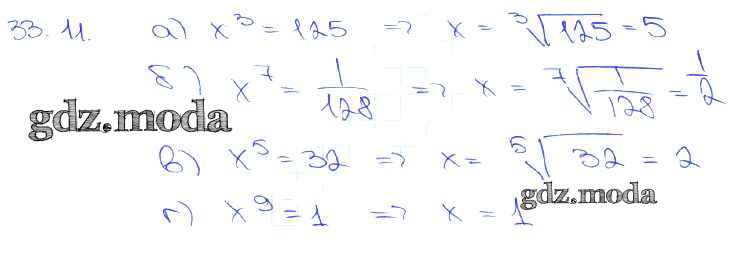 33.11. а) x³ = 125 => x = ∛125 = 5
б) x⁷ = 1/128 => x = ⁷√(1/128) = 1/2
gdz.moda
в) x⁵ = 32 => x = ⁵√32 = 2
gdz.moda
г) x⁹ = 1 => x = 1